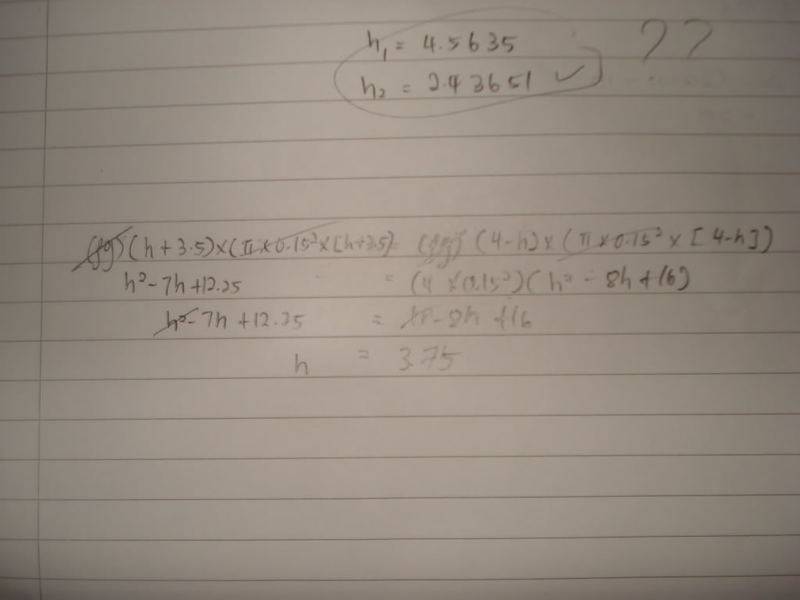 h₁ = 4.5635 ??
h₂ = 2.43651 ✓
(h + 3.5) × (π × 0.15² × [h + 3.5]) = (4 - h) × (π × 0.15² × [4 - h])
h² - 7h + 12.25 = (h² - 8h + 16)
h² - 7h + 12.25 = - 8h + 16
h = 3.75